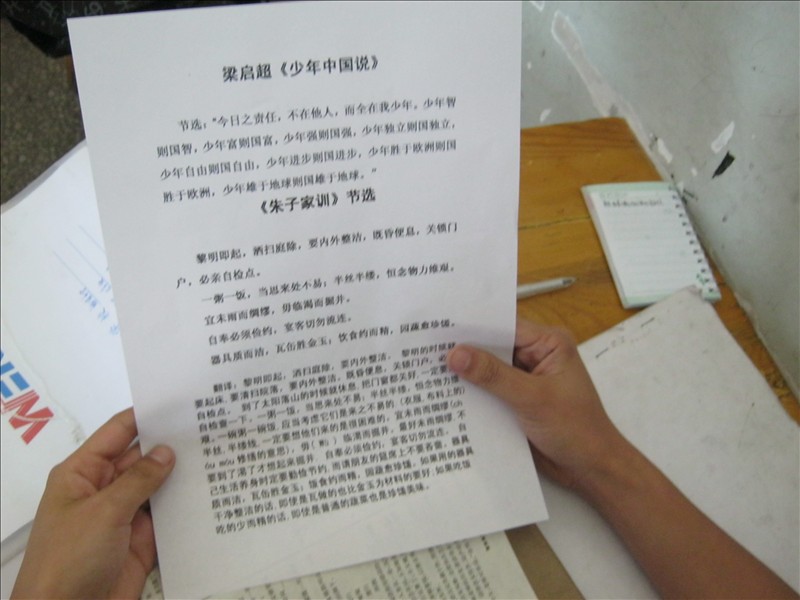 梁启超《少年中国说》
节选："今日之责任，不在他人，而全在我少年。少年智
则国智，少年富则国富，少年强则国强，少年独立则国独立，
少年自由则国自由，少年进步则国进步，少年胜于欧洲则国
胜于欧洲，少年雄于地球则国雄于地球。"
《朱子家训》节选
黎明即起，洒扫庭除，要内外整洁，既昏便息，关锁门
户，必亲自检点。
一粥一饭，当思来处不易；半丝半缕，恒念物力维艰。
宜未雨而绸缪，毋临渴而掘井。
自奉必须俭约，宴客切勿流连。
器具质而洁，瓦缶胜金玉；饮食约而精，园蔬愈珍馐。
翻译：黎明即起，洒扫庭除，要内外整洁，黎明的时候就
要起床，要清扫院落，要内外整洁，既昏便息，关锁门户，必
自检点，到了太阳落山的时候就休息，把门窗都关好，一定要
自检查一下。一粥一饭，当思来处不易；半丝半缕，恒念物力维
艰。一碗粥一碗饭，应当考虑它们是来之不易的（衣服、布料上的）
半丝、半缕线，一定要想他们来的是很困难的，宜未雨而绸缪（ch
ou móu 修缮的意思），毋（wú）临渴而掘井，最好未雨绸缪，不
要到了渴了才想起来掘井，自奉必须俭约，宴客切勿流连，自
己生活养身时定要勤俭节约，而请朋友的筵席上不要吝啬，器具
质而洁，瓦缶胜金玉；饭食约而精，园蔬愈珍馐。如果用的器具
干净整洁的话，即使是瓦做的也比金玉为材料的要好；如果吃饭
吃的少而精的话，即使是普通的蔬菜也是珍馐美味。